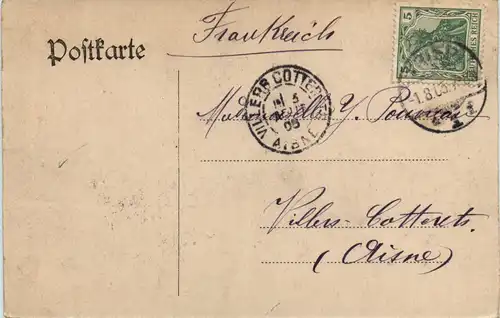 Frankreich
5
DEUTSCHES REICH
Postkarte
VILLERS COTTERETS
AISNE
3
05
1.8.05
Mademoiselle Y.
Villers-Cotterets.
(Aisne)